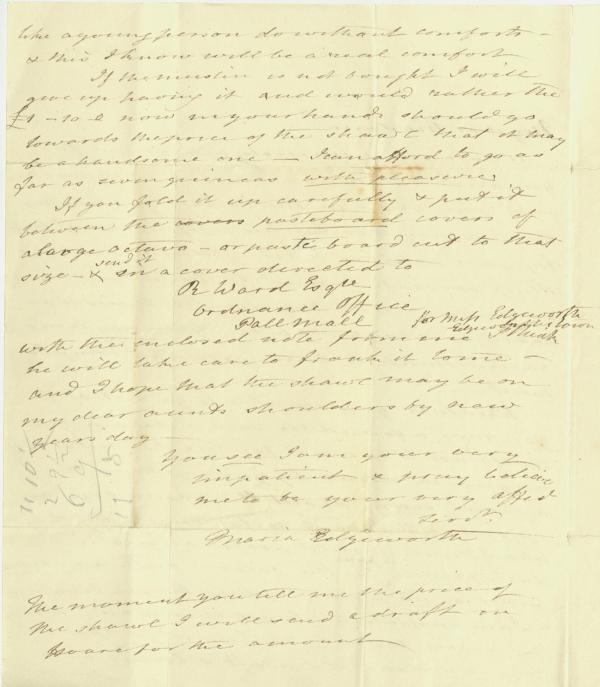 like a young person do without comforts –
& this I know will be a real comfort
If the muslin is not bought I will
give up having it and would rather the
£1 – 10 – 0 now in your hands should go
towards the price of the shawl that it may
be a handsome one — I can afford to go as
far as seven guineas with pleasure.
If you fold it up carefully & put it
between the covers pasteboard covers of
a large octavo – or paste board cut to that
size – & send it in a cover directed to
R Ward Esqre
Ordnance Office
Pall Mall
for Miss Edgeworth
Edgeworthstown
with the enclosed note from me
he will take care to frank it to me –
and I hope that the shawl may be on
my dear aunts shoulders by new
years day –
You see I am your very
impatient & pray believe
me to be your very affed
Maria Edgeworth
The moment you tell me the price of
the shawl I will send a draft on
Hoare for the amount